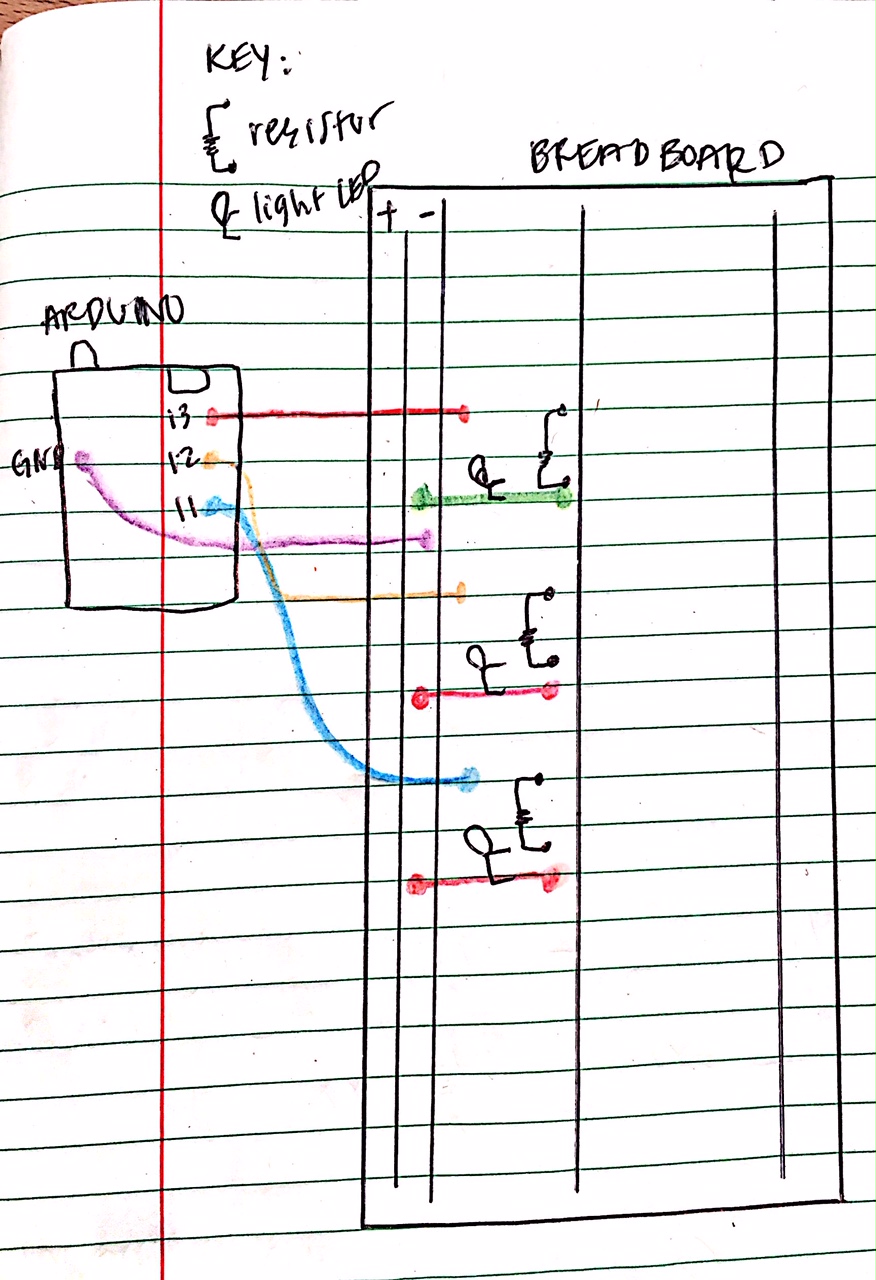 KEY:
resistor
light LED
BREADBOARD
+ -
ARDUINO
13
GND 12
11